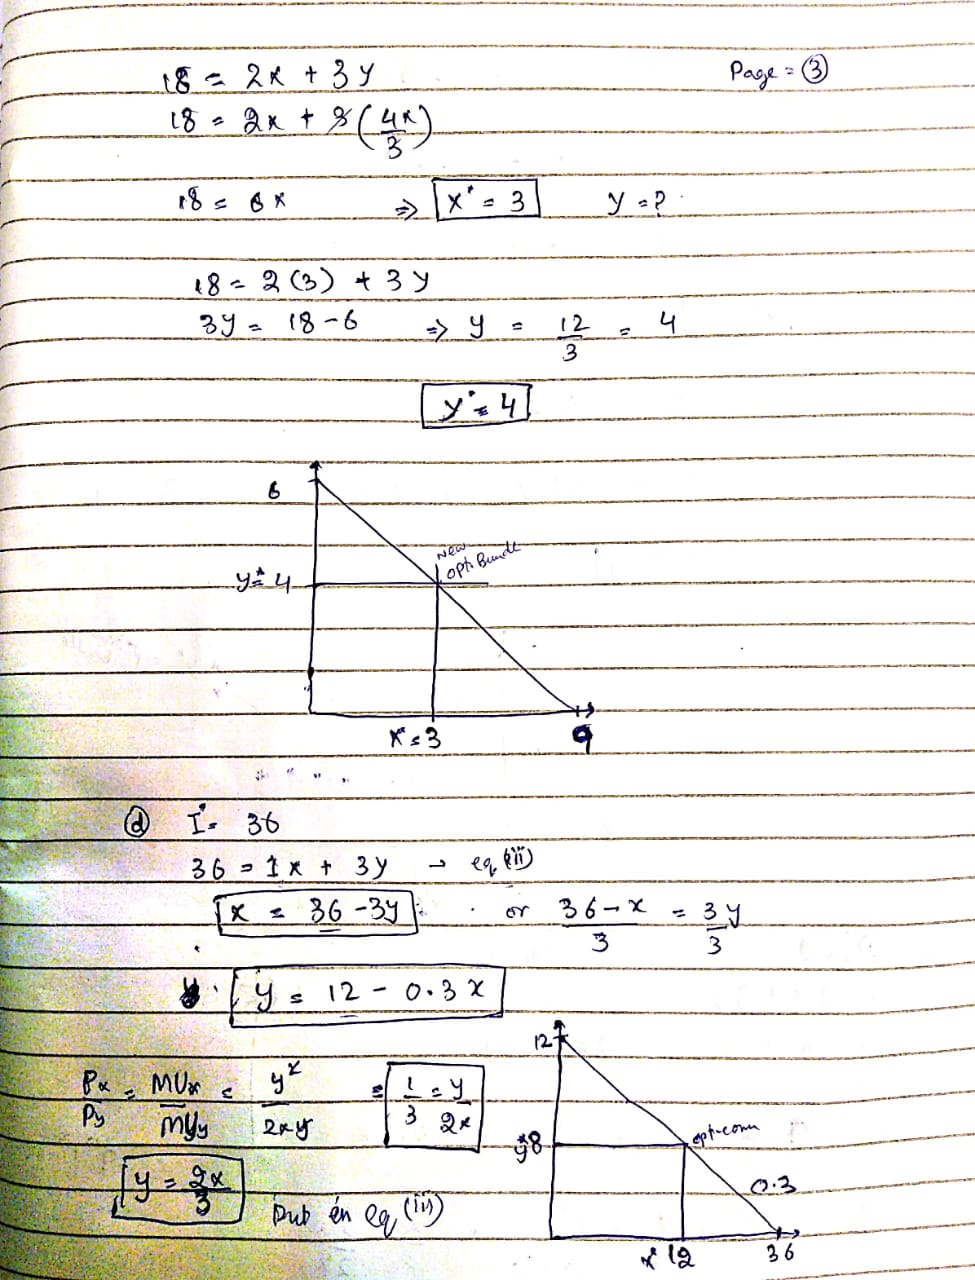 Page = ③
18 = 2x + 3y
18 = 2x + 3(4x/3)
18 = 6x ⇒ x* = 3 y = ?
18 = 2(3) + 3y
3y = 18 - 6 ⇒ y = 12/3 = 4
y* = 4
6
New
opti Bundle
y* = 4
x* = 3
9
ⓓ I = 36
36 = 1x + 3y → eq (iii)
x = 36 - 3y or 36 - x/3 = 3y/3
y = 12 - 0.3x
12
Px/Py = MUx/MUy = y²/2xy = 1/3 = y/2x
y* 8
0.3
y = 2x/3 Put in eq (iii)
x* 12
36